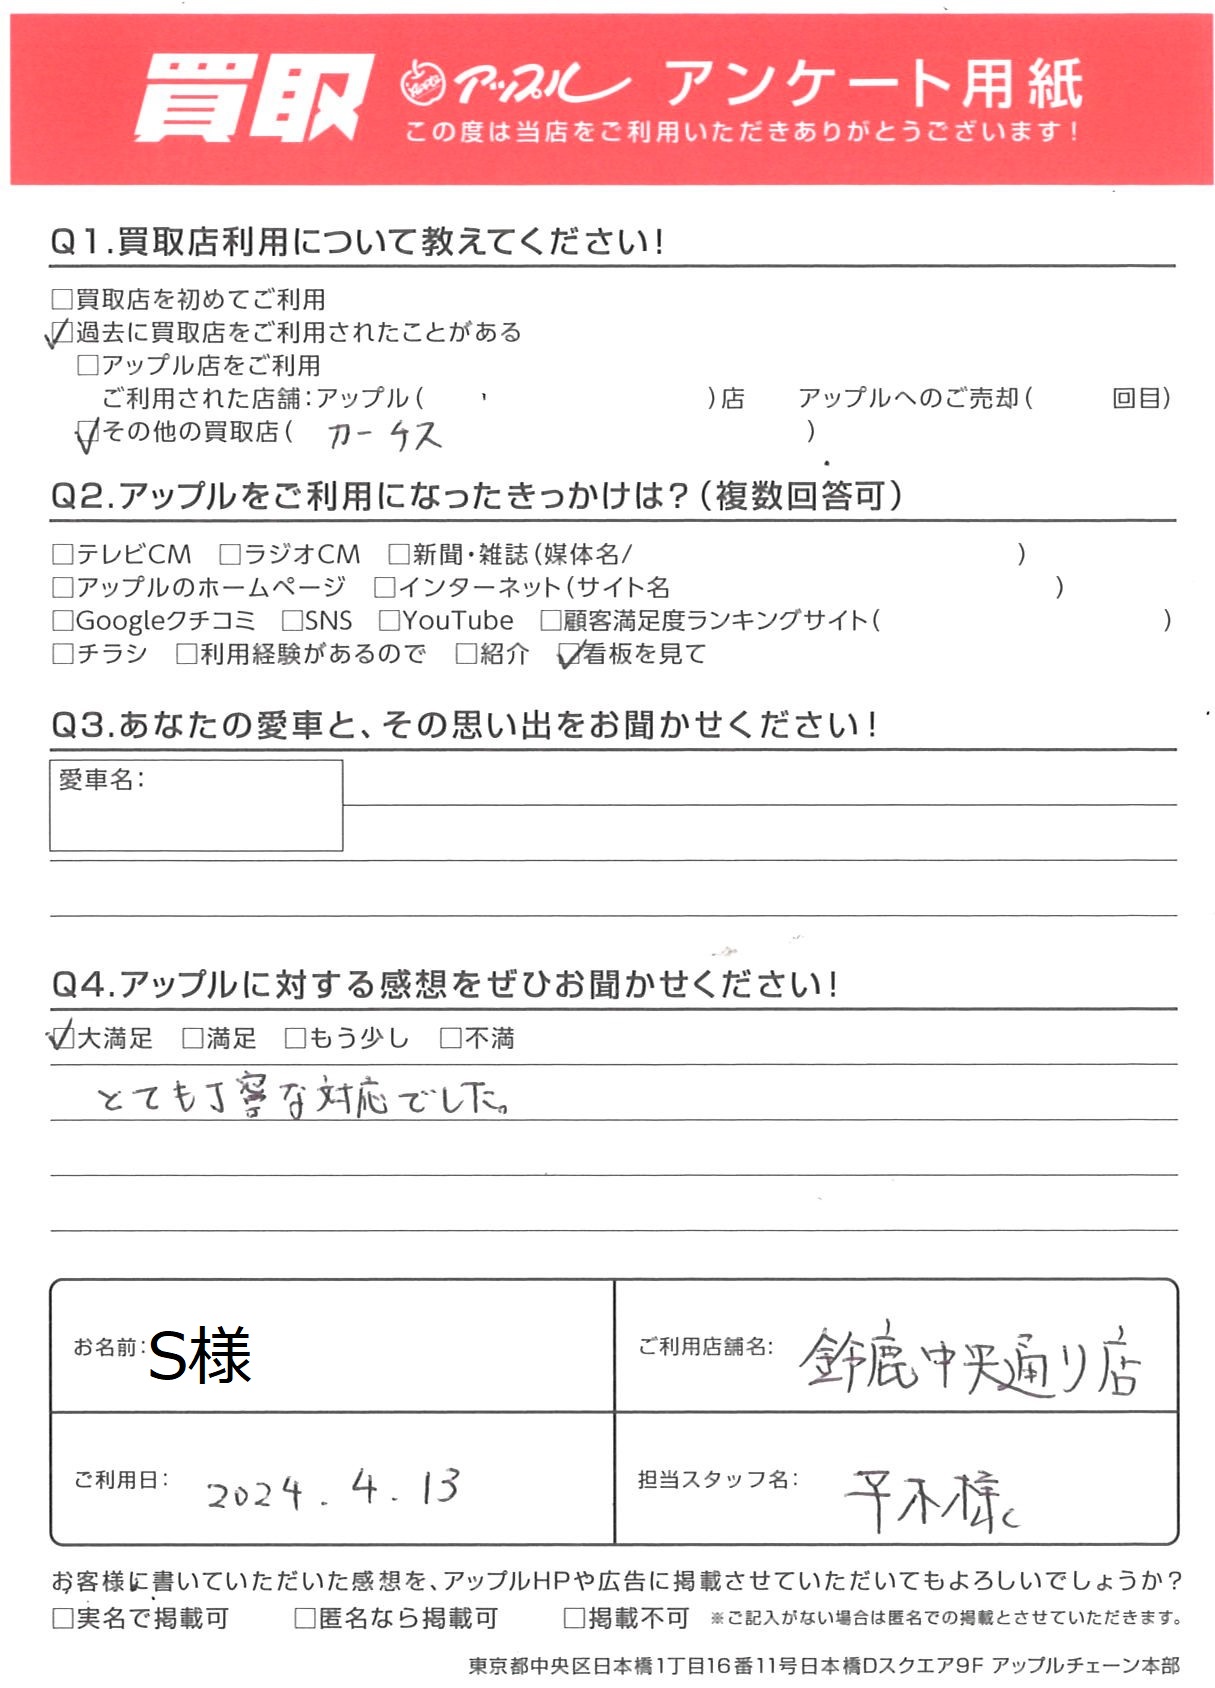 買取 アップル アンケート用紙
この度は当店をご利用いただきありがとうございます！
Q1.買取店利用について教えてください！
□買取店を初めてご利用
☑過去に買取店をご利用されたことがある
□アップル店をご利用
ご利用された店舗：アップル（　）店　アップルへのご売却（　回目）
☑その他の買取店（ カーケス ）
Q2.アップルをご利用になったきっかけは？（複数回答可）
□テレビCM □ラジオCM □新聞・雑誌（媒体名/　）
□アップルのホームページ □インターネット（サイト名　）
□Googleクチコミ □SNS □YouTube □顧客満足度ランキングサイト（　）
□チラシ □利用経験があるので □紹介 ☑看板を見て
Q3.あなたの愛車と、その思い出をお聞かせください！
愛車名：
Q4.アップルに対する感想をぜひお聞かせください！
☑大満足 □満足 □もう少し □不満
とても丁寧な対応でした。
お名前：S様 ご利用店舗名： 鈴鹿中央通り店
ご利用日： 2024.4.13 担当スタッフ名： 平木様
お客様に書いていただいた感想を、アップルHPや広告に掲載させていただいてもよろしいでしょうか？
□実名で掲載可 □匿名なら掲載可 □掲載不可 ※ご記入がない場合は匿名での掲載とさせていただきます。
東京都中央区日本橋1丁目16番11号日本橋Dスクエア9F アップルチェーン本部